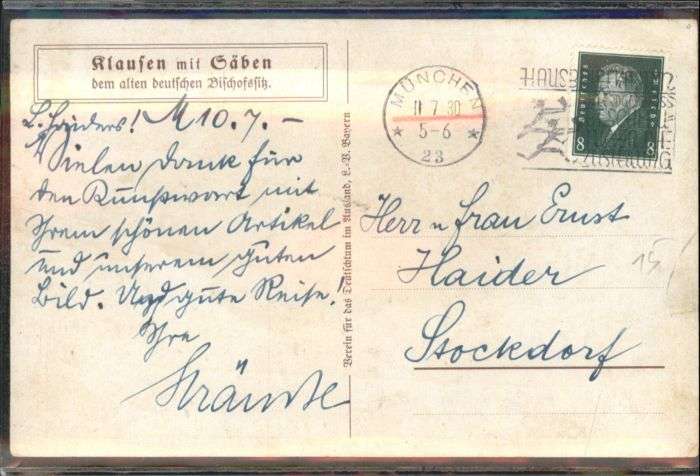 Klausen mit Säben
dem alten deutschen Bischofssitz.
L. Haiders! M 10. 7. –
Vielen Dank für
den Kunstwart mit
Ihrem schönen Artikel
und unserem guten
Bild. Und gute Reise!
Ihre
Verein für das Deutschtum im Ausland, L.-V. Bayern
MÜNCHEN
11 7 30
5-6
23
Deutsches Reich
8 8
Herr u Frau Ernst
Haider
Stockdorf
15,